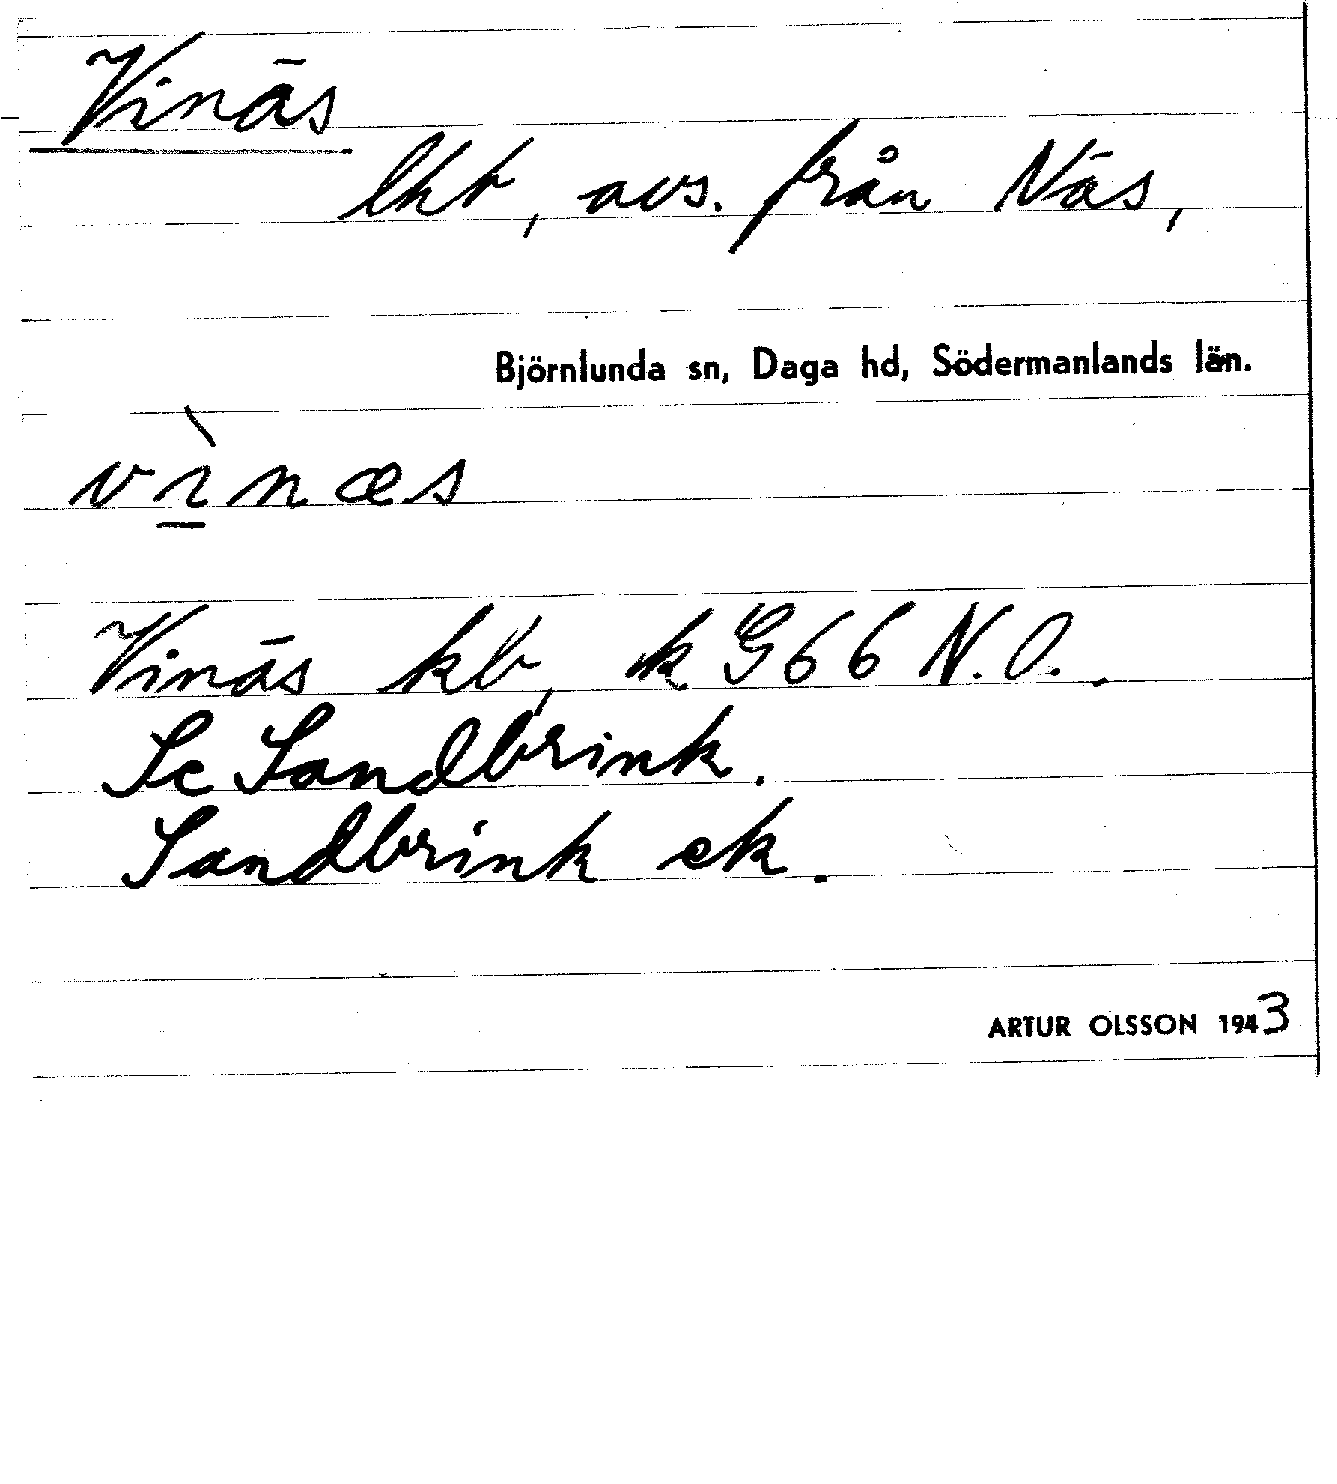 Vinäs
lht, avs. från Näs,
Björnlunda sn, Daga hd, Södermanlands län.
vìnæs
Vinäs kb, ek G66 N.O.
Se Sandbrink.
Sandbrink ek.
ARTUR OLSSON 1943